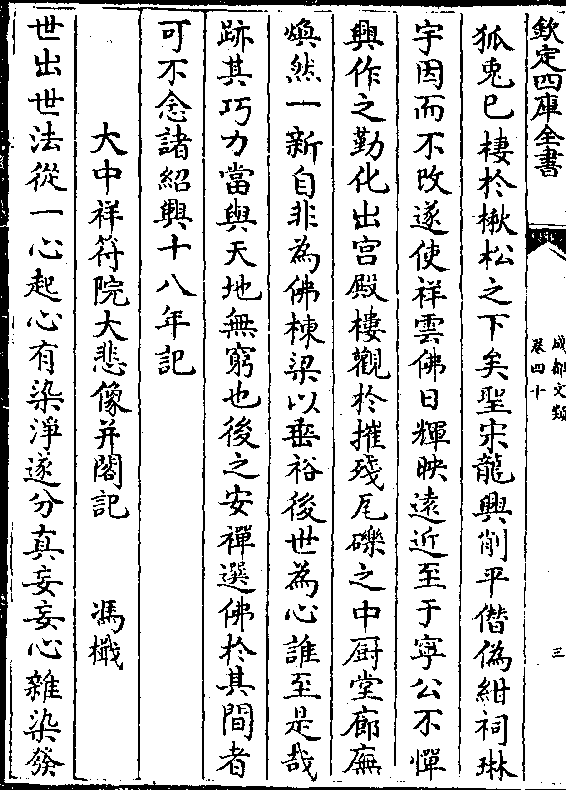 欽定四庫全書
成都文類
卷四十
三
狐兎已棲於楸松之下矣聖宋龍興削平僭偽紺祠琳
宇因而不改遂使祥雲佛日輝映遠近至于寧公不憚
興作之勤化出宫殿樓觀於摧殘瓦礫之中厨堂廊廡
煥然一新自非為佛棟梁以垂裕後世為心誰至是哉
跡其巧力當與天地無窮也後之安禪選佛於其間者
可不念諸紹興十八年記
大中祥符院大悲像并閣記 馮檝
世出世法從一心起心有染淨遂分真妄妄心雜染發